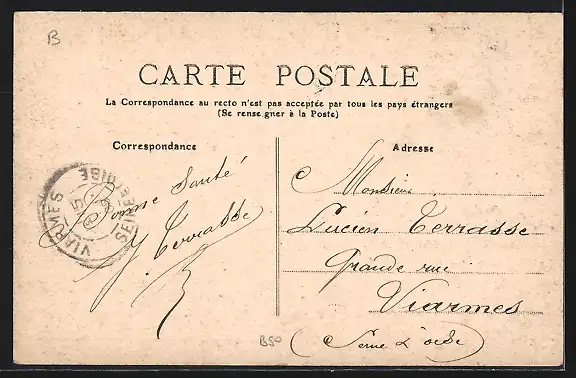 B
CARTE POSTALE
La Correspondance au recto n'est pas acceptée par tous les pays étrangers
(Se renseigner à la Poste)
Correspondance
Bonne Santé
Terrasse
VIARMES
SEINE-ET-OISE
Adresse
Monsieur
Lucien Terrasse
Grande rue
Viarmes
(Seine & Oise)
B50